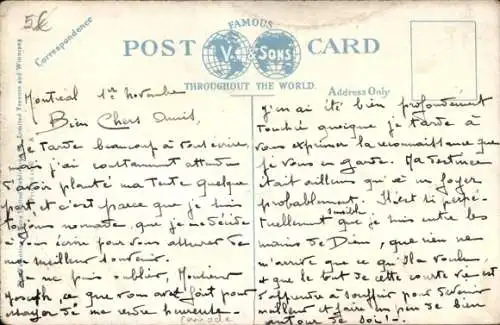 5€
Correspondence
FAMOUS
POST CARD
V. & SONS
THROUGHOUT THE WORLD.
Address Only
Limited Toronto and Winnipeg
Montréal 1er Novembre
Bien Chers Amis,
Je tarde beaucoup à vous écrire,
mais j'ai constamment attendu
d'avoir planté ma Tente quelque
part, et c'est parce que je suis
toujours nomade, que je me décide
à vous écrire pour vous assurer de
mon meilleur souvenir.
Je ne puis oublier, Monsieur
Joseph, ce que vous avez fait pour
essayer de me rendre heureuse.
Canada
J'en ai été bien profondément
touchée quoique je tarde à
vous exprimer la reconnaissance que
je vous en garde. Ma destinée
était ailleurs qu'à un foyer
probablement. Il est si perpé-
tuellement inscrit que je suis entre les
mains de Dieu, que rien ne
m'arrive que ce qu'Il a voulu,
& que le but de cette courte vie est
d'apprendre à souffrir pour devenir
meilleur et faire un peu de bien
autour de soi! -